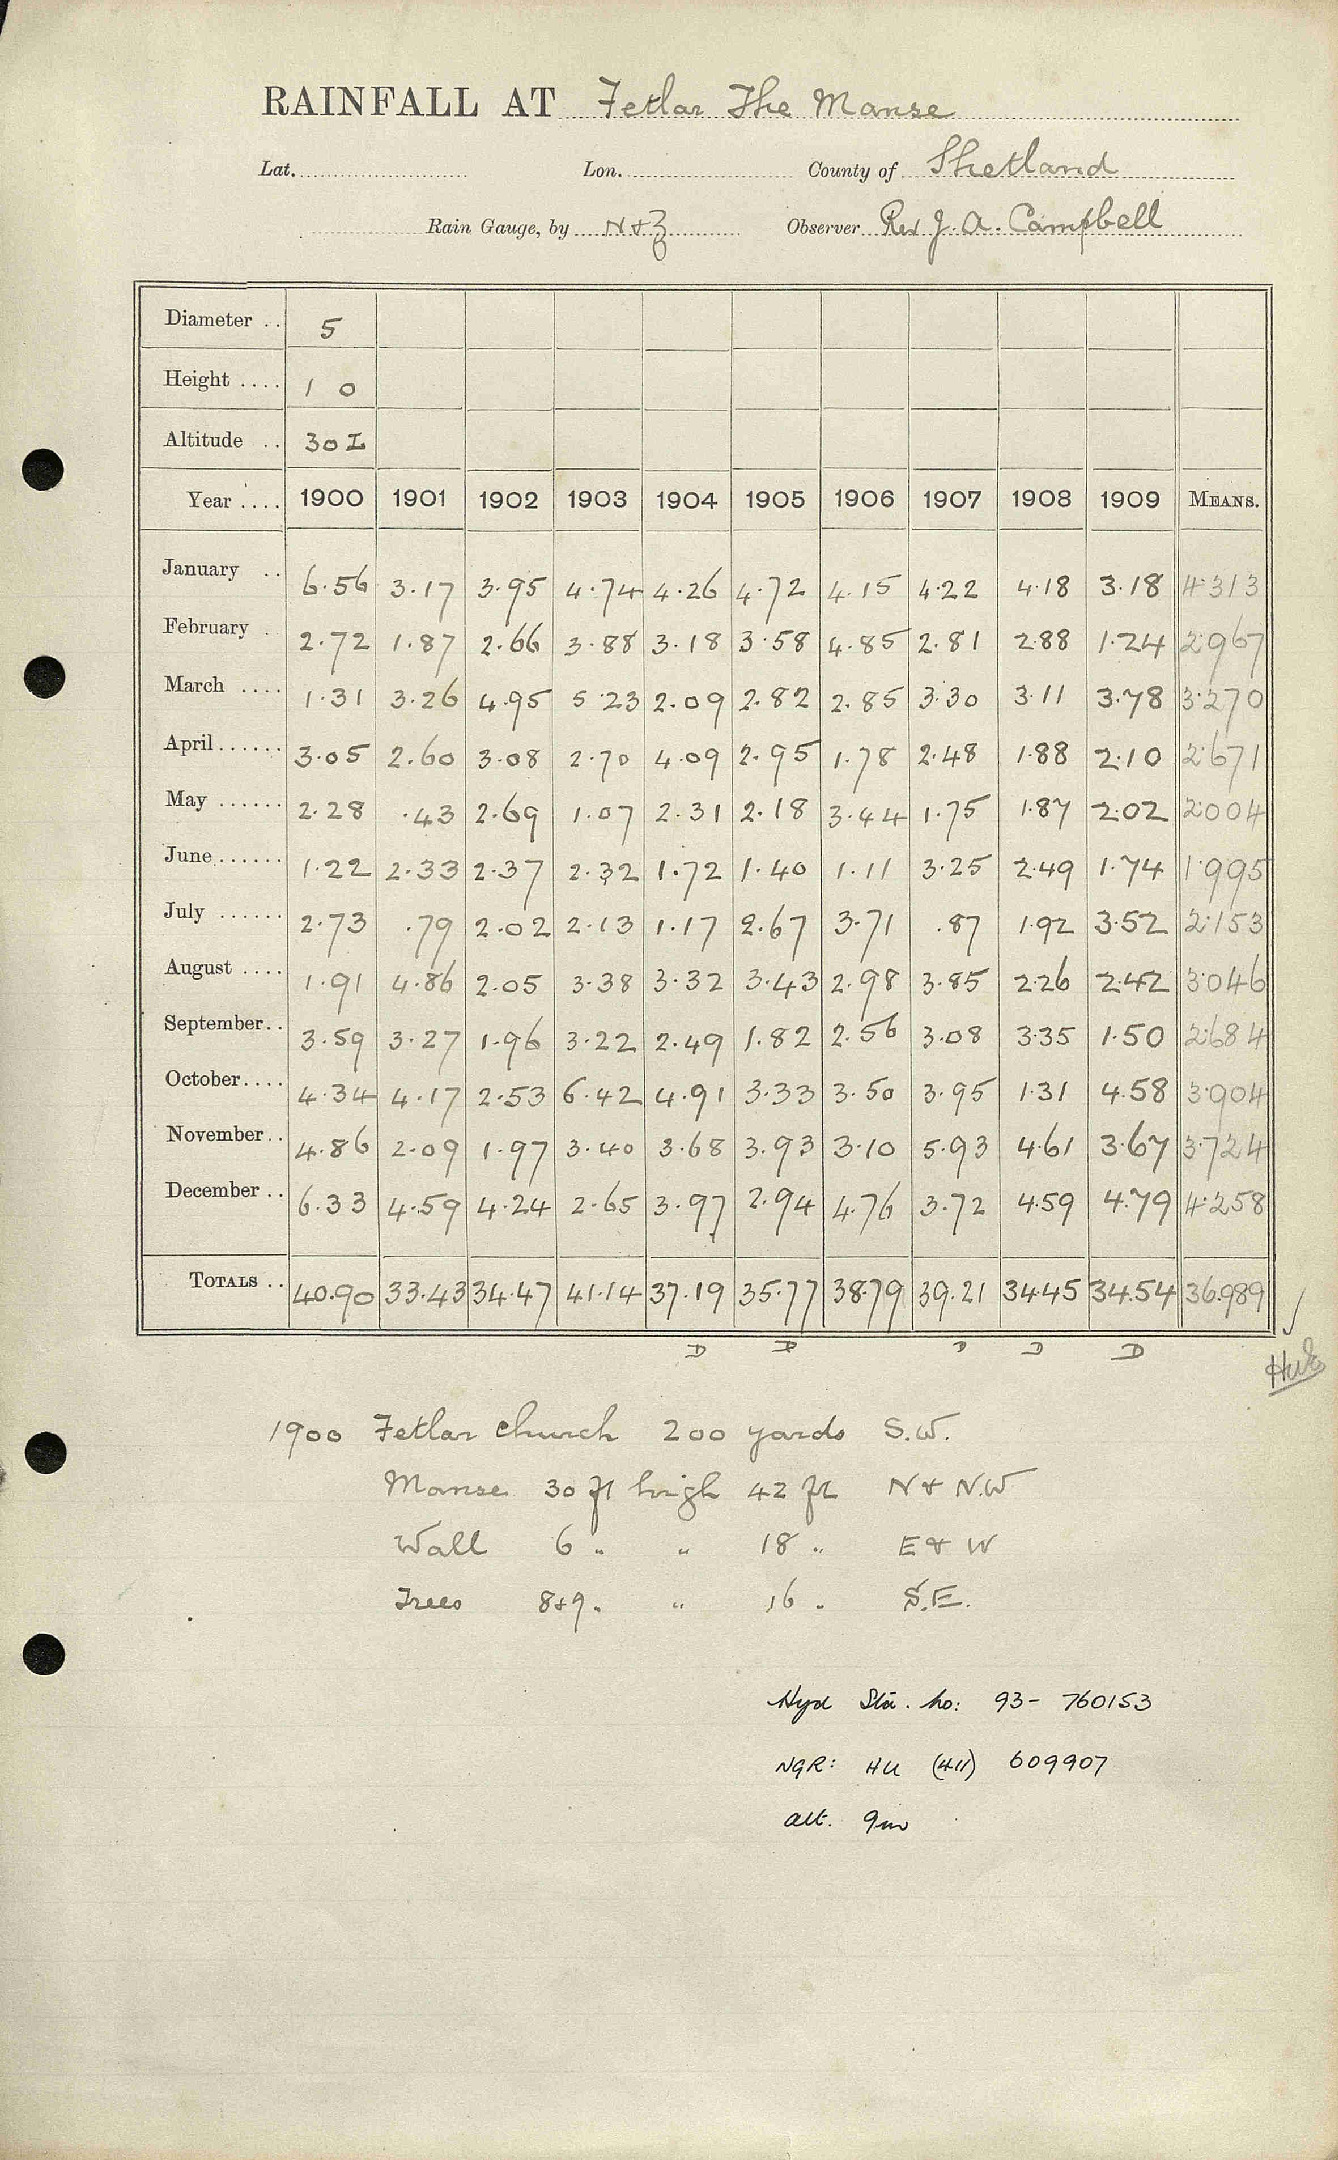 RAINFALL AT Fetlar The Manse
Lat. Lon. County of Shetland
Rain Gauge, by N & Z Observer Rev J. A. Campbell
Diameter .. 5
Height .... 1 0
Altitude .. 30 I
Year .... 1900 1901 1902 1903 1904 1905 1906 1907 1908 1909 MEANS.
January .. 6.56 3.17 3.95 4.74 4.26 4.72 4.15 4.22 4.18 3.18 4.313
February . 2.72 1.87 2.66 3.88 3.18 3.58 4.85 2.81 2.88 1.24 2.967
March .... 1.31 3.26 4.95 5.23 2.09 2.82 2.85 3.30 3.11 3.78 3.270
April ...... 3.05 2.60 3.08 2.70 4.09 2.95 1.78 2.48 1.88 2.10 2.671
May ...... 2.28 .43 2.69 1.07 2.31 2.18 3.44 1.75 1.87 2.02 2.004
June ...... 1.22 2.33 2.37 2.32 1.72 1.40 1.11 3.25 2.49 1.74 1.995
July ...... 2.73 .79 2.02 2.13 1.17 2.67 3.71 .87 1.92 3.52 2.153
August .... 1.91 4.86 2.05 3.38 3.32 3.43 2.98 3.85 2.26 2.42 3.046
September .. 3.59 3.27 1.96 3.22 2.49 1.82 2.56 3.08 3.35 1.50 2.684
October .... 4.34 4.17 2.53 6.42 4.91 3.33 3.50 3.95 1.31 4.58 3.904
November .. 4.86 2.09 1.97 3.40 3.68 3.93 3.10 5.93 4.61 3.67 3.724
December .. 6.33 4.59 4.24 2.65 3.97 2.94 4.76 3.72 4.59 4.79 4.258
TOTALS .. 40.90 33.43 34.47 41.14 37.19 35.77 38.79 39.21 34.45 34.54 36.989
D D D D D
1900 Fetlar Church 200 yards S.W.
Manse 30 ft high 42 ft N & N.W
Wall 6 " " 18 " E & W
Trees 8+9 " " 16 " S.E.
Hyd Sta. no: 93- 760153
NGR: HU (411) 609907
alt. 9m